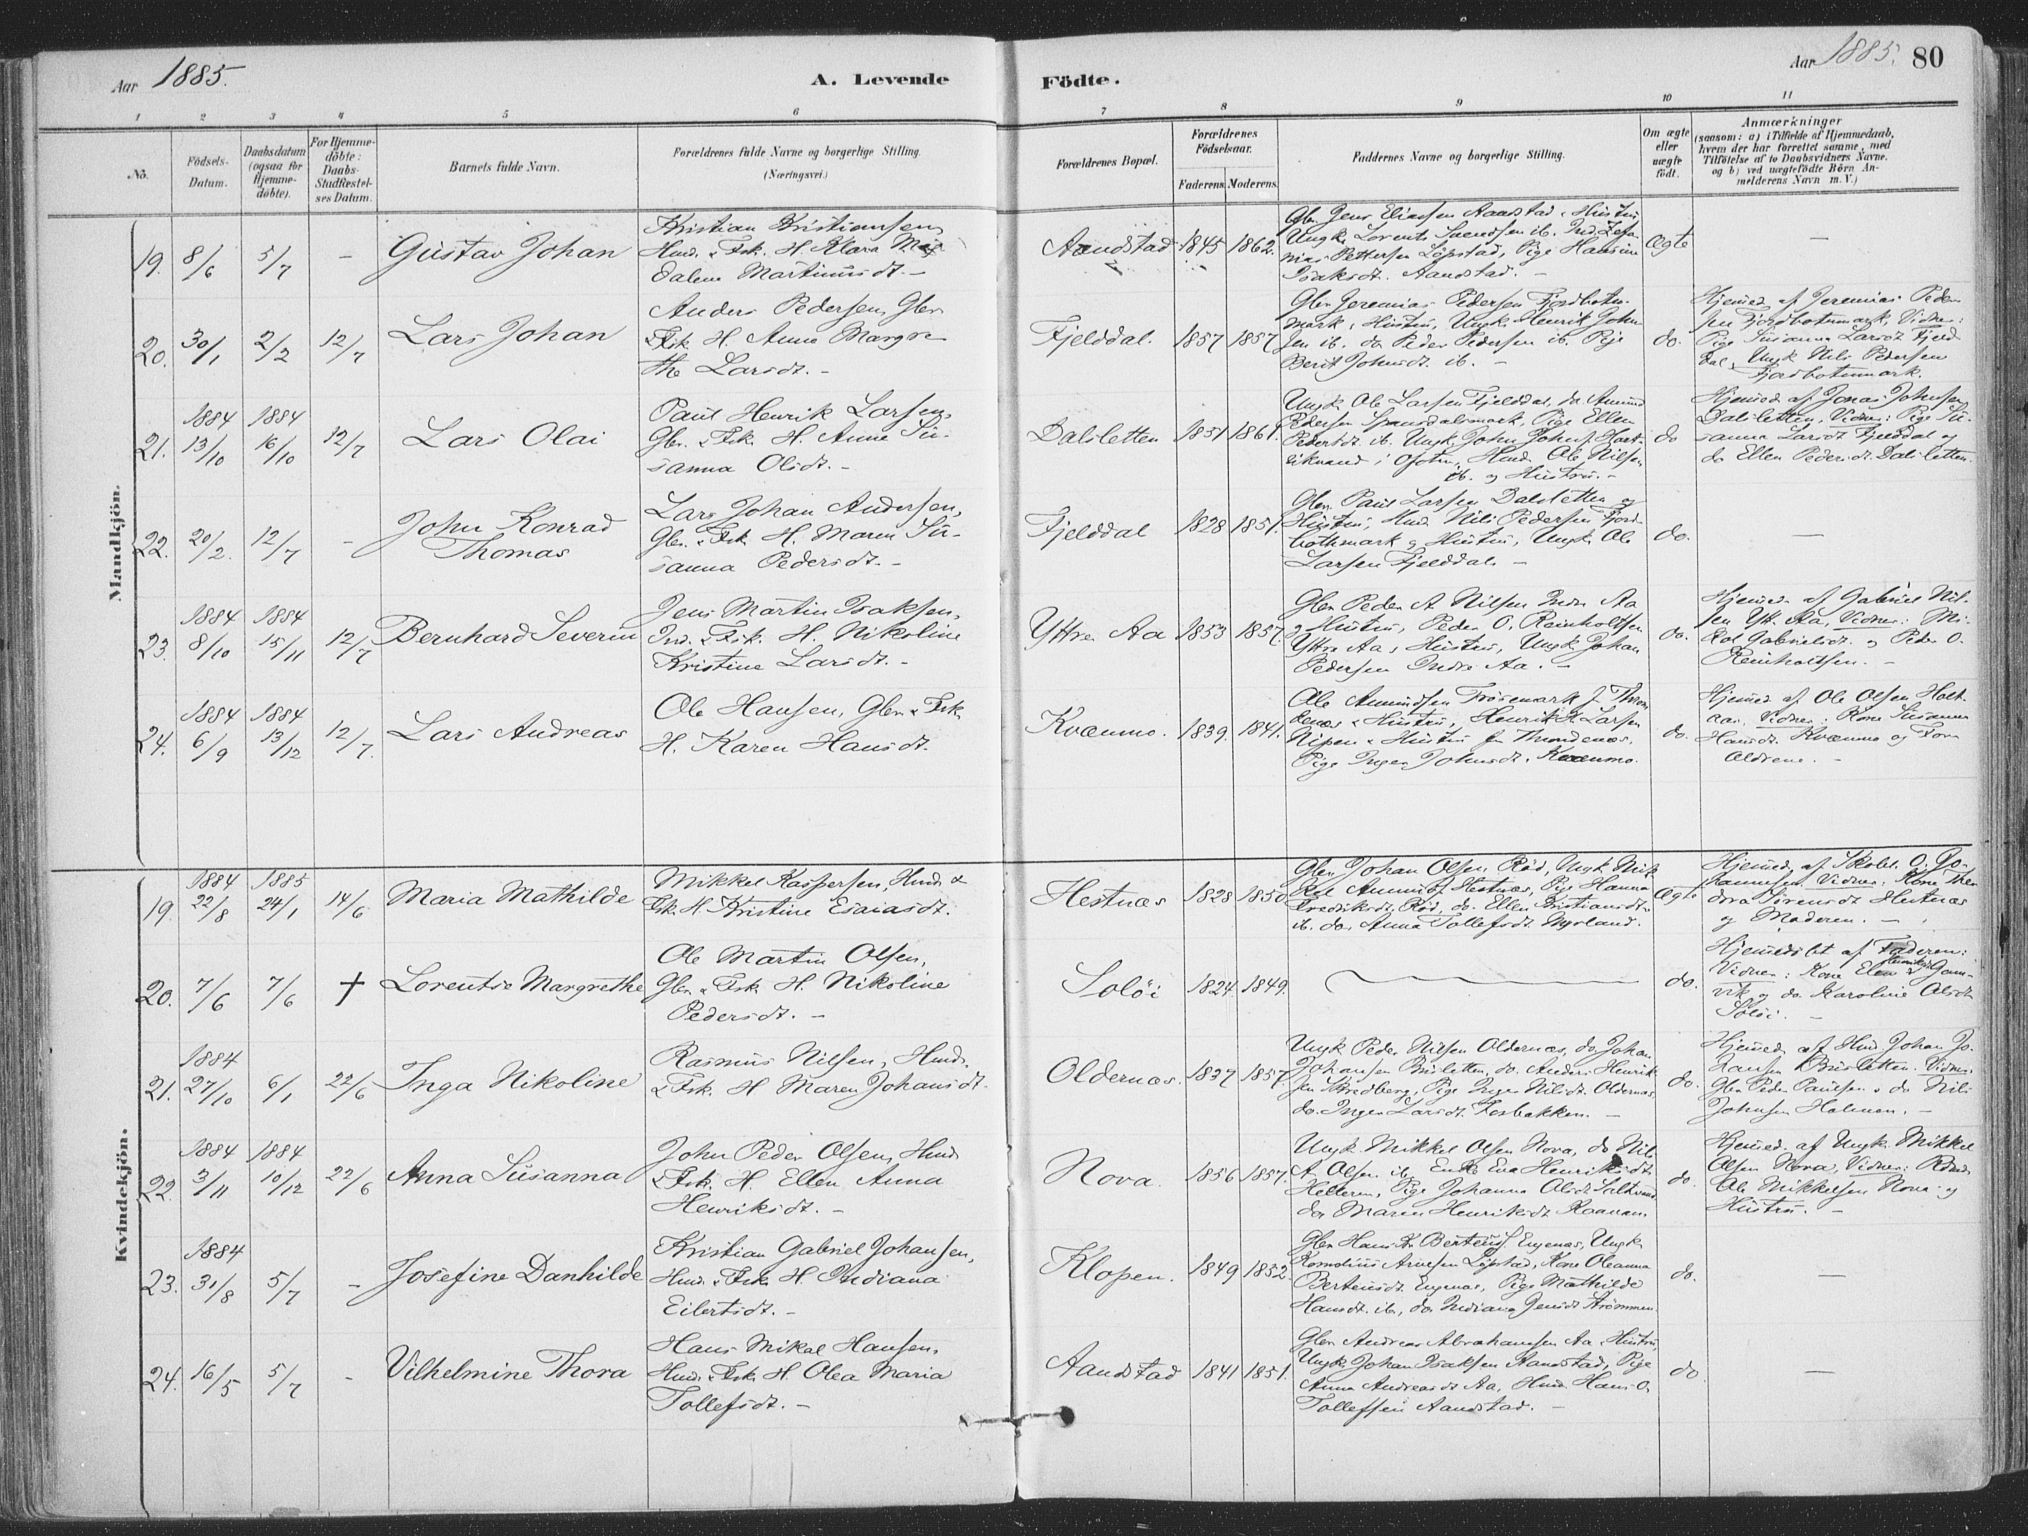 Aar 1885.
A. Levende
Födte.
Aar 1885. 80
1 2 3 4 5 6 7 8 9 10 11
No.
Födsels-
Datum.
Daabsdatum
(ogsaa for
Hjemme-
döbte).
For Hjemme-
döbte:
Daabs-
Stadfæstel-
ses Datum.
Barnets fulde Navn.
Forældrenes fulde Navne og borgerlige Stilling.
(Næringsvei.)
Forældrenes Bopæl.
Forældrenes
Födselsaar.
Faderens. Moderens.
Faddernes Navne og borgerlige Stilling.
Om ægte
eller
uægte
født.
Anmærkninger
(saasom: a) i Tilfælde af Hjemmedaab,
hvem der har forrettet samme, med
Tilföielse af to Daabsvidners Navne.
og b) ved uægtefödte Börn An-
melderens Navn m. V.)
Mandkjön.
19. 8/6 5/7 - Gustav Johan
Kristian Kristiansen,
Hmd. & Fsk. H. Klara
Martinusdt. -
Aandstad 1845 1862.
Gbr. Jens Eliassen Aandstad & Hustru,
Ungk. Lorents Svendsen ib. Ind.
Pettersen Löpstad, Pige
Isaksdt. Aandstad. -
Ægte -
20. 30/1 2/2 12/7 Lars Johan
Anders Pedersen, Gbr.
& Fsk. H. Anne Margre-
the Larsdt. -
Fjelddal. 1857 1857
Gbr. Jeremias Pedersen Fjordbotn-
mark & Hustru, Ungk. Henrik John-
sen ib. do Peder Pedersen ib. Pige
Berit Johnsdt. ib. -
do.
Hjemmed. af Jeremias Peder-
sen Fjordbotnmark, Vidner:
Pige Susanna Larsdt Fjeld-
dal & Ungk. Nils Pedersen
Fjordbotnmark.
21. 1884 13/10 1884 16/10 12/7 Lars Olai
Paul Henrik Larsen,
Gbr. & Fsk. H. Anne Su-
sanna Olsdt. -
Dalsletten 1851 1861.
Ungk. Ole Larsen Fjelddal, do Amund
Pedersen Spansdalsmark, Pige Ellen
Pedersdt. ib. Ungk. John Johns.
i Ofoten, Hmd. Ole Nilsen
ib. og Hustru. -
do
Hjemmed. af Jonas Johnsen
Dalsletten, Vidner: Pige Su-
sanna Larsdt Fjelddal og
do Ellen Pedersdt. Dalsletten.
22. 20/2. 12/7 - John Konrad
Thomas
Lars Johan Andersen,
Gbr. & Fsk. H. Maren Su-
sanna Pedersdt. -
Fjelddal 1828 1851.
Gbr. Paul Larsen Dalsletten og
Hustru, Hmd. Nils Pedersen Fjord-
botnmark og Hustru, Ungk. Ole
Larsen Fjelddal. -
do. -
23. 1884 8/10 1884 15/11 12/7 Bernhard Severin
Jens Martin Isaksen,
Ind. & Fsk. H. Nikoline
Kristine Larsdt. -
Yttre Aa 1853 1857.
Gbr. Peder A Nilsen Indre Aa
& Hustru, Peder O. Reinholtsen
Yttre Aa & Hustru, Ungk. Johan
Pedersen Indre Aa. -
do.
Hjemmed. af Gabriel Nil-
sen Ytt. Aa, Vidner:
Gabrielsdt. og Peder O.
Reinholtsen. -
24. 1884 6/9 1884 13/12 12/7. Lars Andreas
Ole Hansen, Gbr. & Fsk.
H. Karen Hansdt.
Kvænmo. 1839. 1841.
Ole Amundsen
& Hustru, Henrik H. Larsen
Nipen & Hustru
Pige Inger Johnsdt. Kvænmo.
do.
Hjemmed. af Ole Olsen
Vidner: Kone Susanna
Hansdt. Kvænmo og For-
ældrene. -
Kvindekjön.
19. 1884 22/8 1885 24/1 14/6 Maria Mathilde
Mikkel Kaspersen, Hmd. &
Fsk. H. Kristine Esaiasdt.
Hestnæs 1828 1850
Gbr. Johan Olsen, Röd, Ungk. Mik-
kel Amunds. Hestnæs, Pige Hanna
Fredriksdt. Röd, do. Ellen Kristiansdt.
ib. do. Anna Tollefsdt. Myrland.
Ægte
Hjemmed. af Skolel. O. Jo-
hannesen, Vidner: Kone The-
odora Sörensdt Hestnæs
og Moderen. -
20. 7/6 7/6 † Lorentse Margrethe
Ole Martin Olsen,
Gbr. & Fsk. H. Nikoline
Pedersdt. -
Solöi 1824. 1849.
do.
Hjemmedöbt af Faderen:
Vidner: Kone Elen Henriksdt Gam-
vik og do. Karoline Olsdt
Solöi. -
21. 1884 27/10 6/1 22/6 Inga Nikoline
Rasmus Nilsen, Hmd.
& Fsk. H. Maren Johansdt.
Oldernæs. 1837 1857.
Ungk. Peder Nilsen Oldernæs, do Johan
Johansen Brisletten, do. Anders Henrik-
sen Bredberg, Pige Inger Nilsdt. Oldernæs
do. Inger Larsdt. Fosbakken. -
do.
Hjemmed. af Hmd. Johan Jo-
hansen Brisletten. Vidner:
Gbr. Peder Paulsen & do Nils
Johnsen Holmen. -
22. 1884 3/11 1884 10/12 22/6 Anna Susanna
John Peder Olsen, Hmd.
& Fsk. H. Ellen Anna
Henriksdt. -
Nova. 1856 1857.
Ungk. Mikkel Olsen Nova, do Nils
A. Olsen ib. Enke Eva Henriksdt.
Helleren, Pige Johanna Olsdt. Saltvand
do. Maren Henriksdt.
do.
Hjemmed. af Ungk. Mikkel
Olsen Nova, Vidner:
Ole Mikkelsen Nova og
Hustru. -
23. 1884 31/8 5/7 - Josefine Danhilde
Kristian Gabriel Johansen,
Hmd. & Fsk. H. Indiana
Eilertsdt. -
Klopen. 1849 1852.
Gbr. Hans Kr. Berteus. Engenæs, Ungk.
Arnesen Löpstad, Kone Oleanna
Berteusdt. Engenæs, Pige Mathilde
Hansdt. ib, do. Indiana Jensdt Strömmen.
do. -
24. 16/5 5/7 - Vilhelmine Thora
Hans Mikal Hansen,
Hmd. & Fsk. H. Olea Maria
Tollefsdt. -
Aandstad 1841 1851.
Gbr. Andreas Abrahamsen Aa & Hustru,
Ungk. Johan Isaksen Aandstad, Pige
Anna Andreasdt Aa, Hmd. Hans O.
Tollefsen Aandstad. -
do -